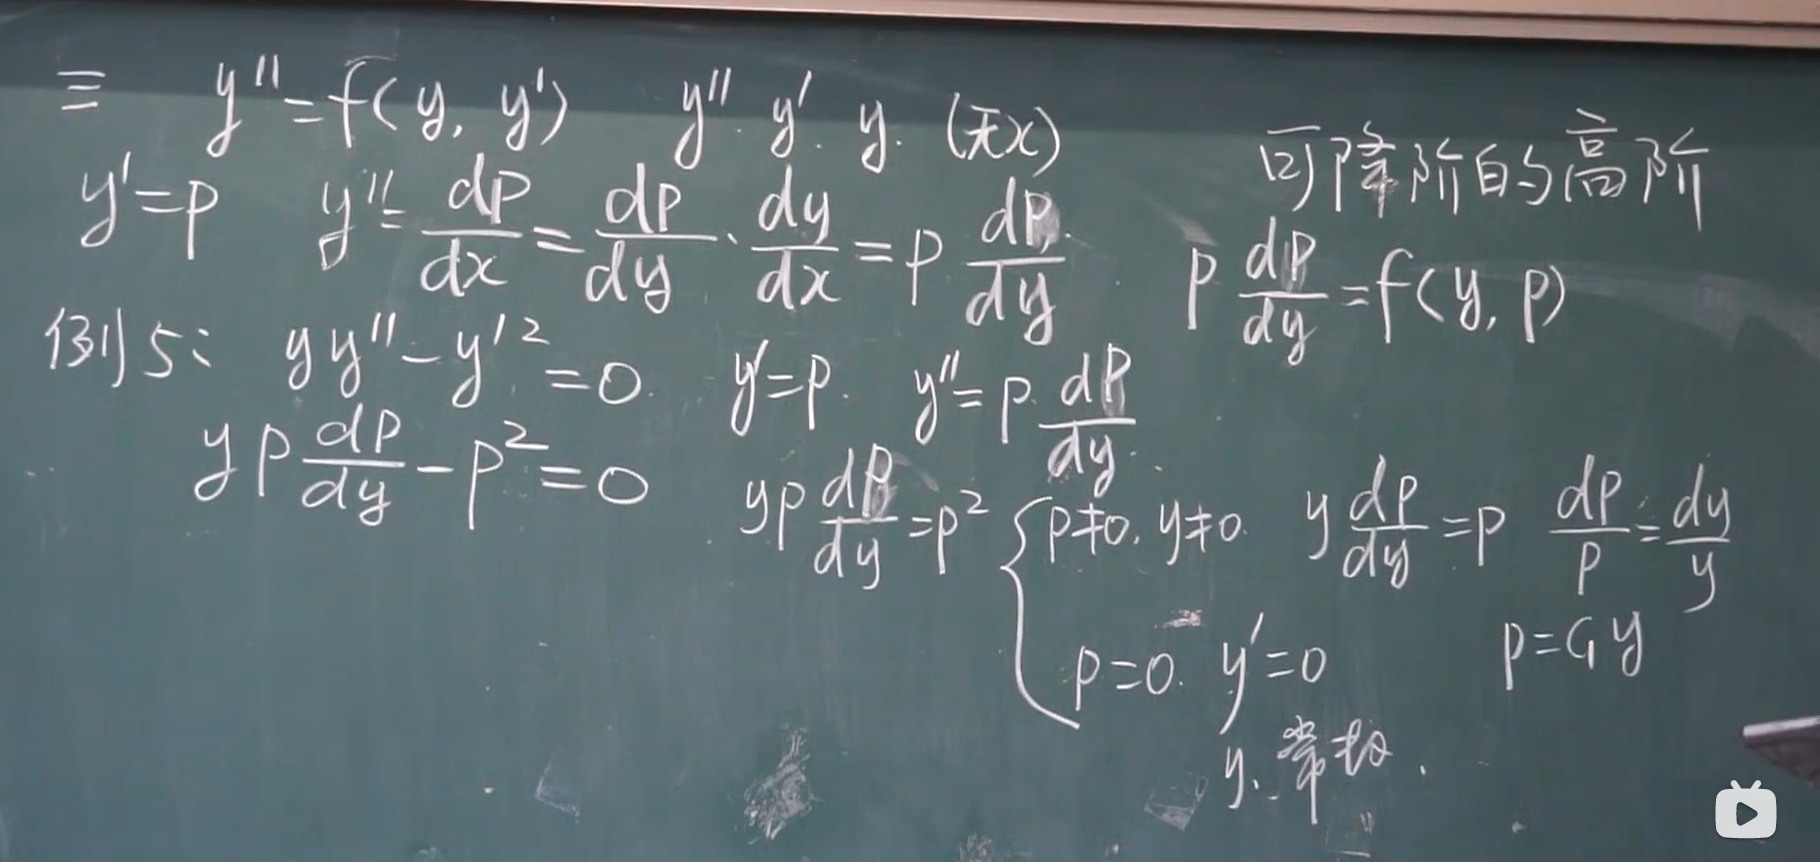 三 y''=f(y, y') y''. y'. y. (无x)
可降阶的高阶
y'=p y''=dp/dx=dp/dy·dy/dx=p dp/dy p dp/dy=f(y, p)
例5: yy''-y'²=0. y'=p. y''=p dp/dy.
yp dp/dy-p²=0 yp dp/dy=p² { p≠0. y≠0. y dp/dy=p dp/p=dy/y
p=0. y'=0 p=C₁y
y. 常数.